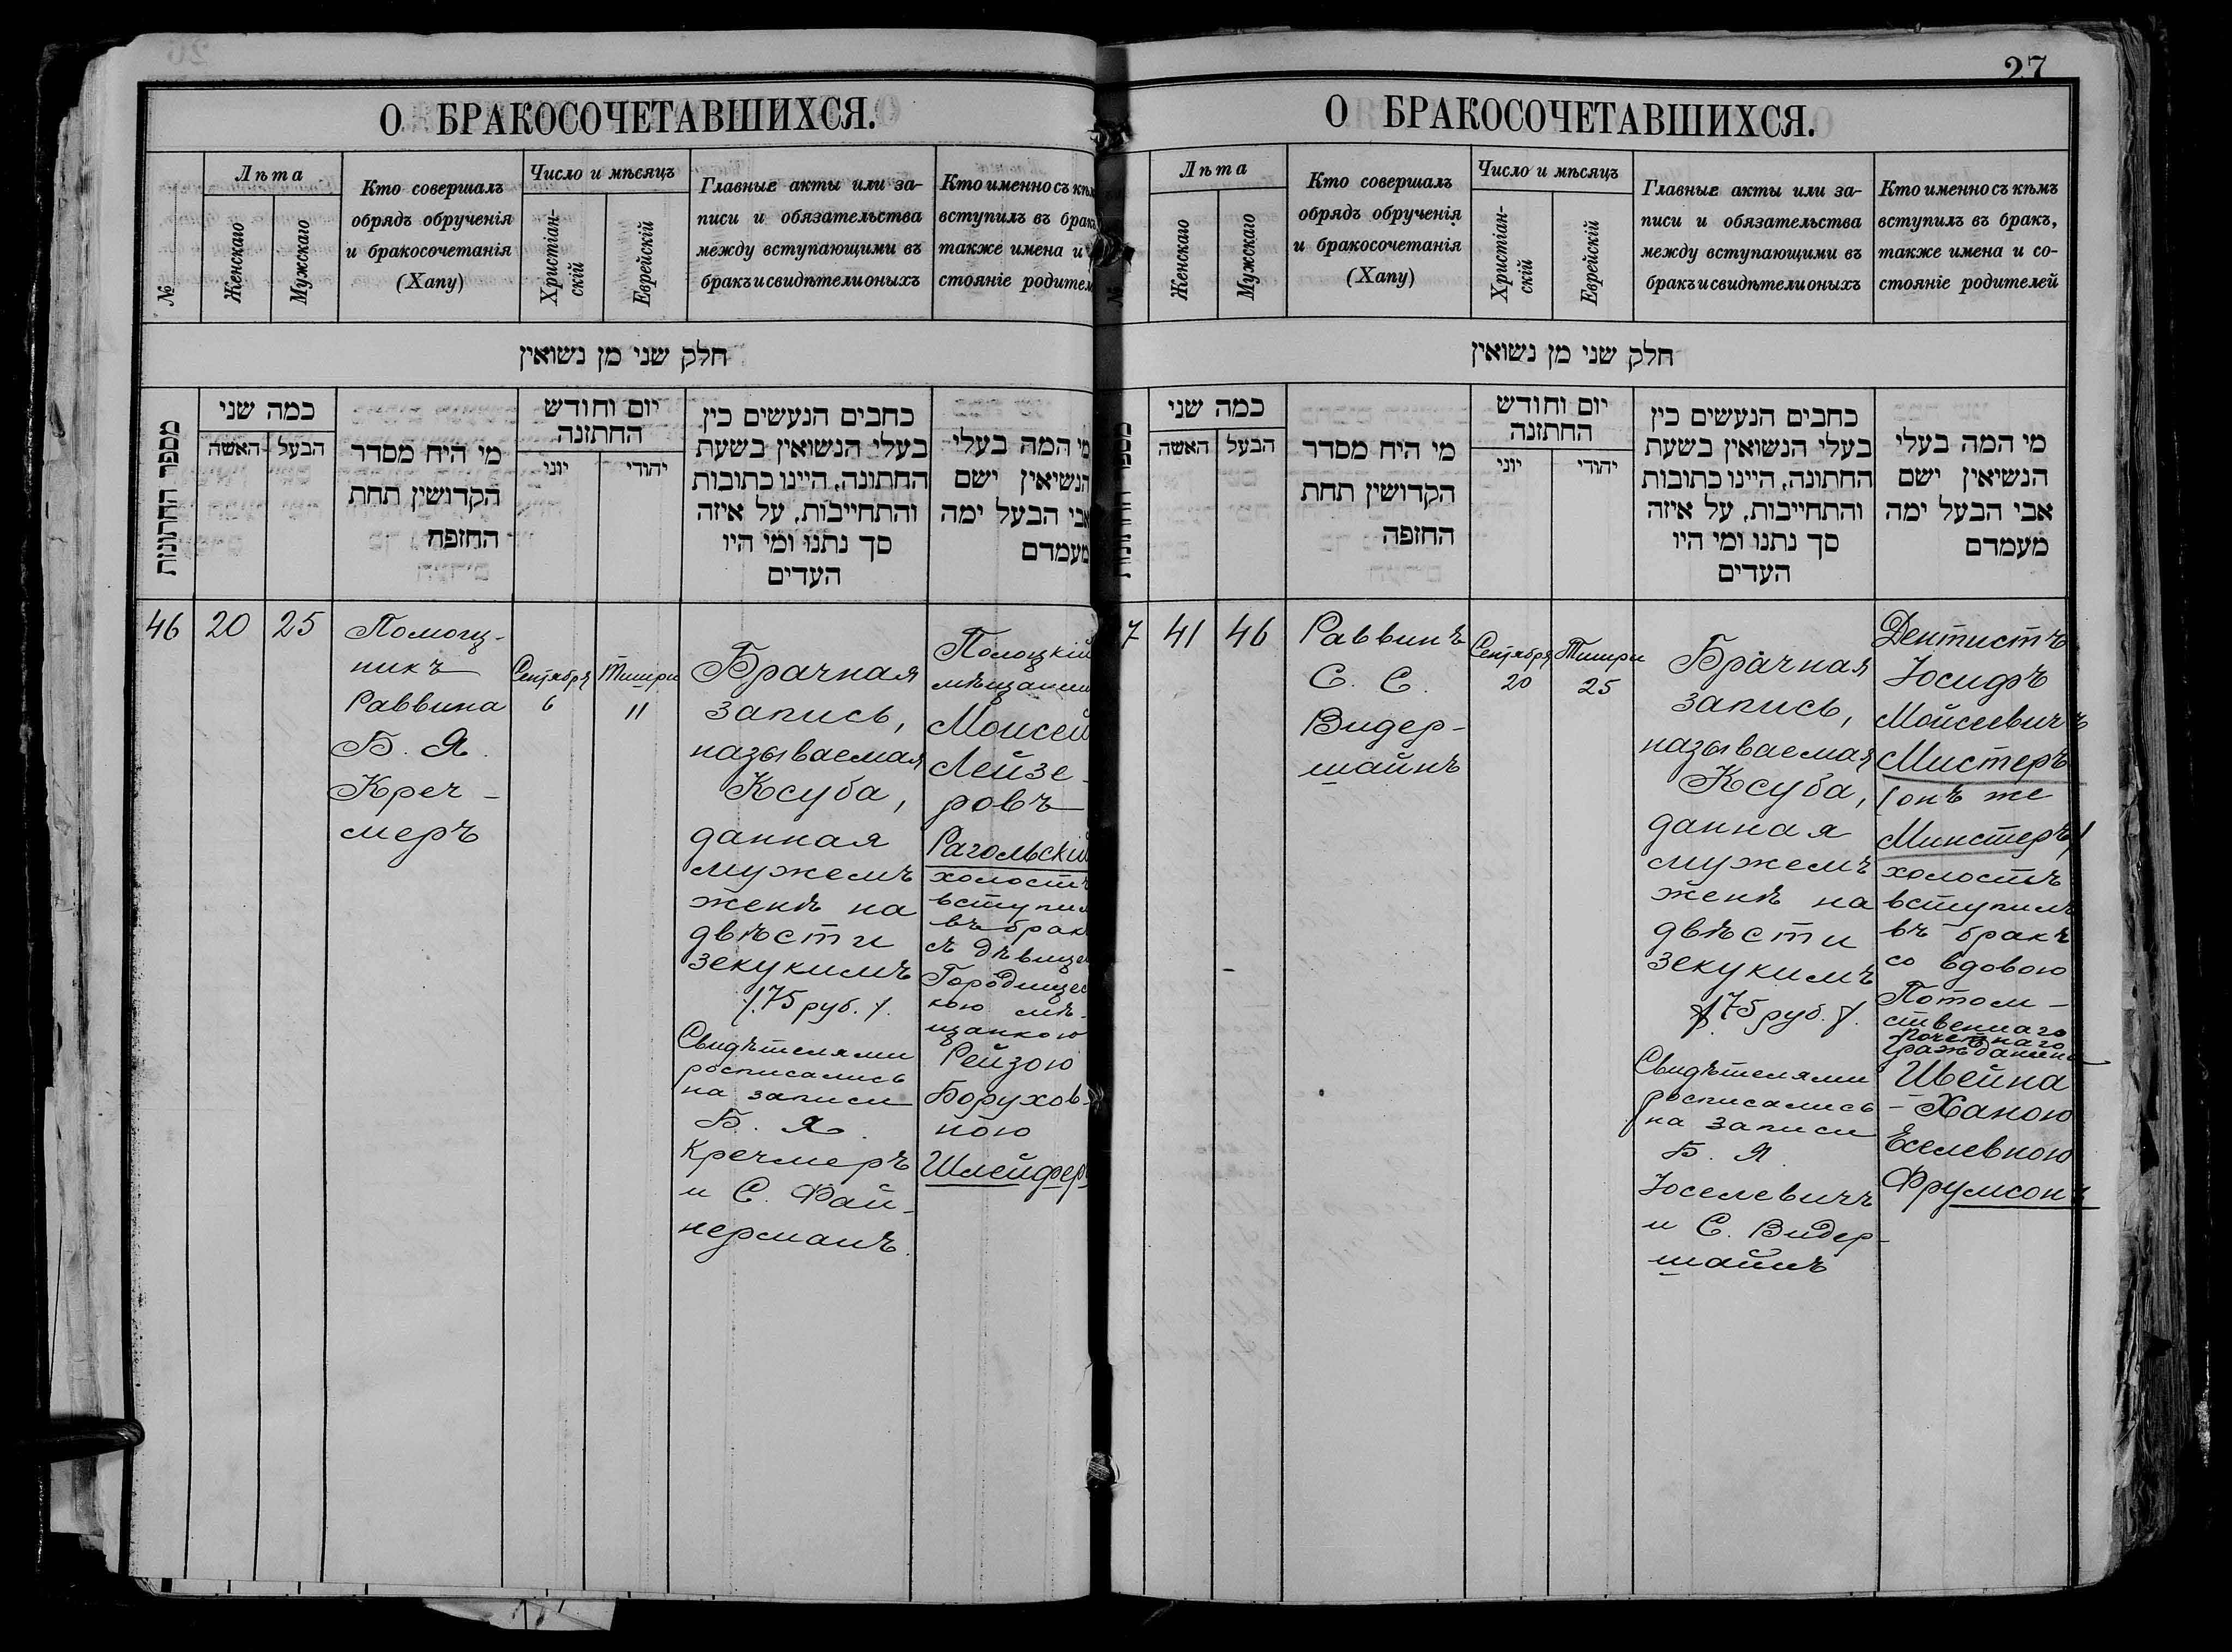 О БРАКОСОЧЕТАВШИХСЯ.
№
Лѣта
Женскаго
Мужскаго
Кто совершалъ
обрядъ обрученія
и бракосочетанія
(Хапу)
Число и мѣсяцъ
Христіан-
скій
Еврейскій
Главные акты или за-
писи и обязательства
между вступающими въ
бракъ и свидѣтели оныхъ
Кто именно съ кѣм
вступилъ въ брак
также имена и
стояніе родител
חלק שני מן נשואין
מספר החתונות
כמה שני
האשה
הבעל
מי היח מסדר
הקדושין תחת
החופה
יום וחודש
החתונה
יוני
יהודי
כתבים הנעשים בין
בעלי הנשואין בשעת
החתונה, היינו כתובות
והתחייבות, על איזה
סך נתנו ומי היו
העדים
מי המה בעלי
הנשיאין ישם
אבי הבעל ימה
מעמדם
46
20
25
Помощ-
никъ
Раввина
Б. Я.
Креч-
меръ
Сентября
6
Тишри
11
Брачная
запись,
называемая
Ксуба,
данная
мужемъ
женѣ на
двѣсти
зекукимъ
/.75 руб./.
Свидѣтелями
росписались
на записи
Б. Я.
Кречмеръ
и С. Фай-
нерманъ.
Полоцкій
мѣщанин
Моисей
Лейзе-
ровъ
Рагольскій
холостъ
вступил
въ брак
съ дѣвицей
Городищес
кою мѣ-
щанкою
Рейзою
Борухов-
ною
Шлейфер
27
О БРАКОСОЧЕТАВШИХСЯ.
№
Лѣта
Женскаго
Мужскаго
Кто совершалъ
обрядъ обрученія
и бракосочетанія
(Хапу)
Число и мѣсяцъ
Христіан-
скій
Еврейскій
Главные акты или за-
писи и обязательства
между вступающими въ
бракъ и свидѣтели оныхъ
Кто именно съ кѣмъ
вступилъ въ бракъ,
также имена и со-
стояніе родителей
חלק שני מן נשואין
כמה שני
האשה
הבעל
מי היח מסדר
הקדושין תחת
החופה
יום וחודש
החתונה
יוני
יהודי
כתבים הנעשים בין
בעלי הנשואין בשעת
החתונה, היינו כתובות
והתחייבות, על איזה
סך נתנו ומי היו
העדים
מי המה בעלי
הנשיאין ישם
אבי הבעל ימה
מעמדם
7
41
46
Раввинъ
С. С.
Видер-
шайнъ
Сентября
20
Тишри
25
Брачная
запись,
называемая
Ксуба,
данная
мужемъ
женѣ на
двѣсти
зекукимъ
/.75 руб./.
Свидѣтелями
росписались
на записи
Б. Я.
Юселевичъ
и С. Видер-
шайнъ
Дентистъ
Іосифъ
Мойсеевичъ
Мистеръ
/онъ же
Минстеръ/
холостъ
вступилъ
въ бракъ
со вдовою
Потом-
ственнаго
Почетнаго
Гражданина
Шейна
-Ханою
Еселевною
Фрумсонъ